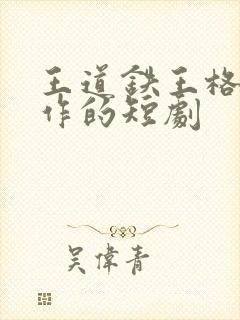 王道鉄王格
作的短劇
吴偉青